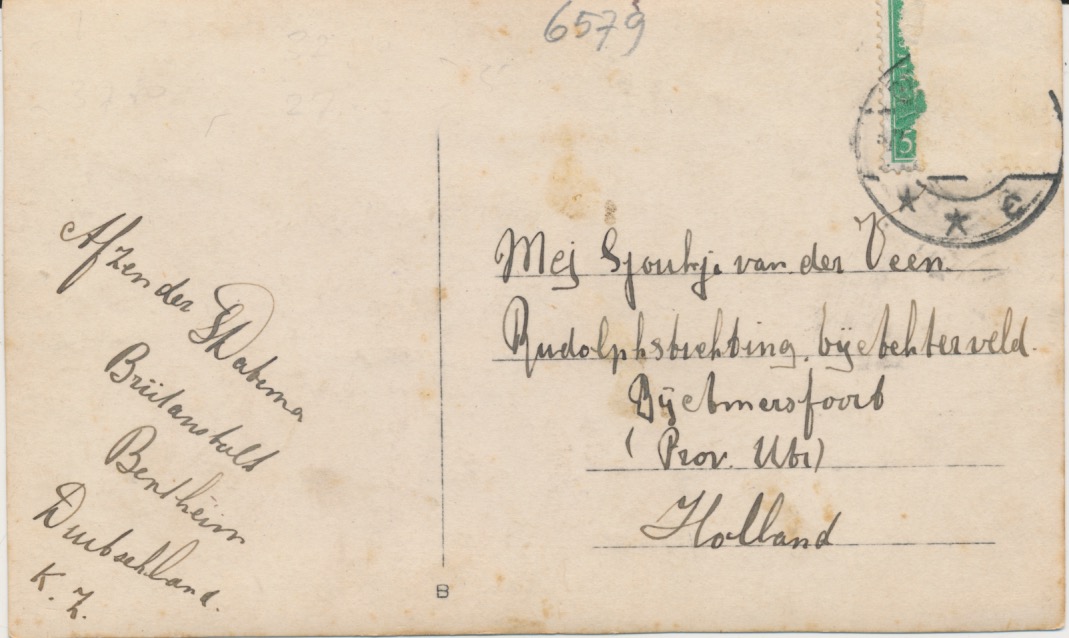 6579
5
Afzender S Rabma
Brütanstalt
Bentheim
Duitschland.
K. Z.
Mej Sjoukje van der Veen.
Rudolphstichting. bij Achterveld.
Bij Amersfoort
(Prov. Utr)
Holland
B